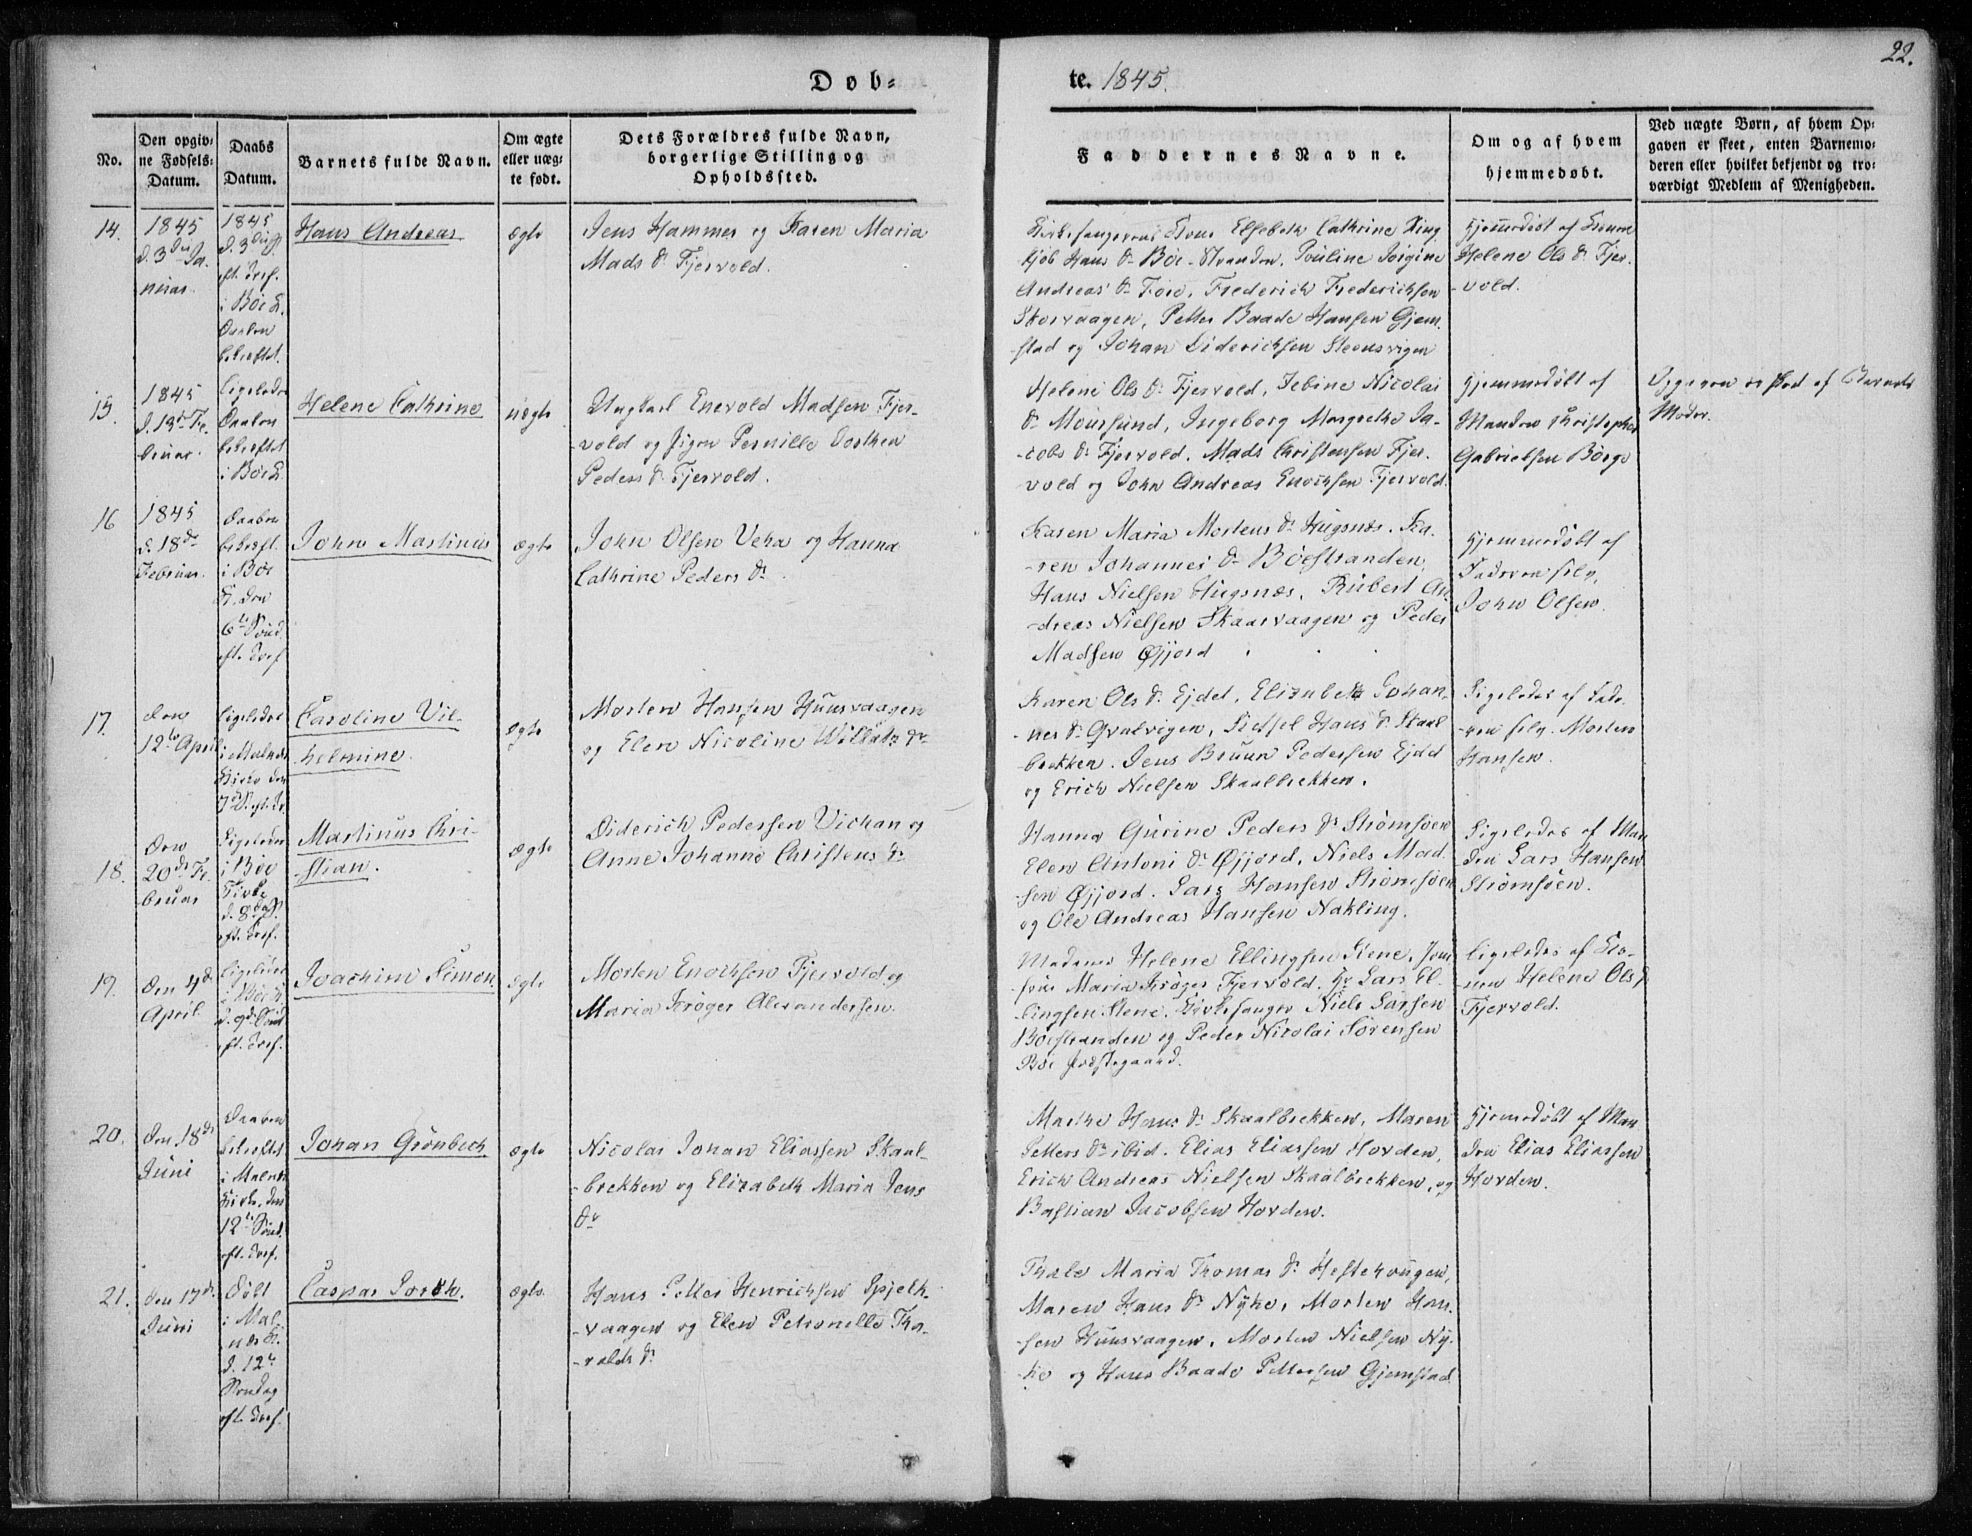 22.
Døb=
te. 1845.
No.
Den opgiv=
ne Fødsels=
Datum.
Daabs
Datum.
Barnets fulde Navn.
Om ægte
eller uæg=
te født.
Dets Forældres fulde Navn,
borgerlige Stilling og
Opholdssted.
Faddernes Navne.
Om og af hvem
hjemmedøbt.
Ved uægte Børn, af hvem Op=
gaven er skeet, enten Barnemo=
deren eller hvilket bekjendt og tro=
værdigt Medlem af Menigheden.
14.
1845
d. 3die Ja-
nuar.
1845
eft. Tref.
i Böe K.
Daaben
bekreftet.
Hans Andreas
ægte
Jens Hammer og Karen Maria
Mads Dr Fjervold.
Kirkesangerens Kone Elsebeth Cathrine Ring
kjöb Hans Dr Böe-Stranden, Pauline Jörgine
Andreas Dr Före, Frederich Frederichsen
Skorvaagen, Petter Baade Hansen Gjem-
stad og Johan Diderichsen Steensvigen
Hjemmedöbt af Konen
Helene Ols Dr Fjer-
-vold.
15.
1845
d. 13de Fe-
bruar.
Ligeledes
Daaben
bekreftet
i Böe K.
Helene Cathrine
uægte
Ungkarl Enevold Madsen Fjer-
-vold og Pigen Pernille Dorthea
Peders Dr Fjervold.
Helene Ols Dr Fjervold, Jebine Nicolai
Dr Moursund, Ingeborg Margrethe Ja-
-cobs Dr Fjervold, Mads Christensen Fjer-
vold og John Andreas Enochsen Fjervold.
Hjemmedöbt af
Manden Christopher
Gabrielsen Börge
Opgaven er skeet af Barnets
Moder.
16
1845
d. 18de
Februar.
Daaben
bekreft.
i Böe
K. den
6te Sönd.
eft. Tref.
John Martinus
ægte
John Olsen Veha og Hanna
Cathrine Peders Dr.
Karen Maria Mortens Dr Hugsnæs, Ka-
-ren Johannes Dr Böestranden,
Hans Nielsen Hugsnæs, Rubert An-
-dreas Nielsen Skaarvaagen og Peder
Madsen Øjjord
Hjemmedöbt af
Faderen selv,
John Olsen.
17.
den
12te April
Ligeledes
i Malnes
Kirke den
Caroline Vil-
helmine.
ægte
Morten Hansen Huusvaagen
og Elen Nicoline Willats Dr
Karen Ols Dr Ejdet, Elizabeth Johan-
-nes Dr Qvalvigen, Sidsel Hans Dr Skaal
brekken. Jens Bruun Pedersen Ejdet
og Erich Nielsen Skaalbrekken.
Ligeledes af Fade-
-ren selv. Morten
Hansen.
18.
Den
20de Fe-
bruar
Ligeledes
i Böe
Kirke
eft. Tref.
Martinus Chri-
-stian.
ægte
Diderich Pedersen Vichan og
Anne Johanne Christens Dr
Hanna Gurine Peders Dr Strömsöen
Elen Antoni Dr Øjjord, Niels Mad-
-sen Øjjord. Lars Hansen Strömsöen
og Ole Andreas Hansen Nakling.
Ligeledes af Man
den Lars Hansen
Strömsöen.
19.
Den 4de
April.
Ligeledes
i Böe K.
d. 9de Sönd
eft. Tref.
Joachim Simon.
ægte
Morten Enochsen Fjervold og
Maria Kröger Alexandersen.
Madame Helene Ellingsen Stene, Jom
fru Maria Kröger Fjervold, Hr Lars El-
lingsen Stene, Kirkesanger Niels Larsen
Böestranden og Peder Nicolai Sörensen
Böe Præstegaard.
Ligeledes af Ko-
nen Helene Ols D
Fjervold.
20.
Den 18de
Juni
Daaben
bekreftet
i Malnes
Kirke, den
12te Sönd.
eft. Tref.
Johan Grönbech
ægte
Nicolai Johan Eliassen Skaal-
-brekken og Elizabeth Maria Jens
Dr
Marthe Hans Dr Skaalbrekken, Maren
Petters Dr ibid. Elias Eliassen Horden,
Erich Andreas Nielsen Skaalbrekken, og
Bastian Jacobsen Horden.
Hjemmedöbt af Man
den Elias Eliassen
Horden.
21.
den 17de
Juni
Döbt
i Mal-
nes K.
d. 12te
Söndag
eft. Tref.
Caspar Lorck.
ægte
Hans Petter Henrichsen Spjelk-
-vaagen og Elen Petronelle Tho-
-valds Dr
Thale Maria Thomas Dr Hestehougen,
Maren Hans Dr Nyke, Morten Han-
-sen Huusvaagen, Morten Nielsen Ny-
-ke og Hans Baade Pettersen Gjemstad.